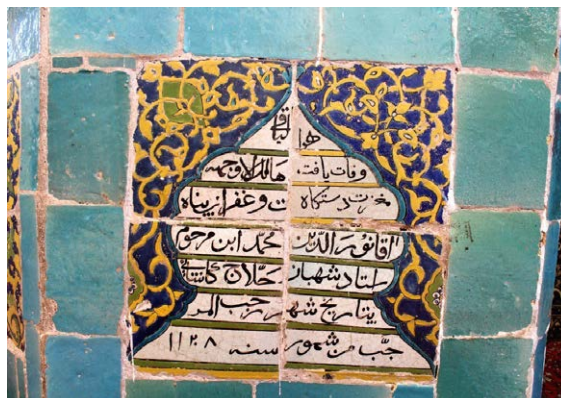 هوا لباقی
وفات یافت هالك الا وجهه
دستکاه وغفران پناه
اقا نور الدین محمد ابن مرحوم
استاد شهباز حلاج کاشانی
بتاریخ شهر رجب المر
جب من شهور سنه ۱۱۲۸